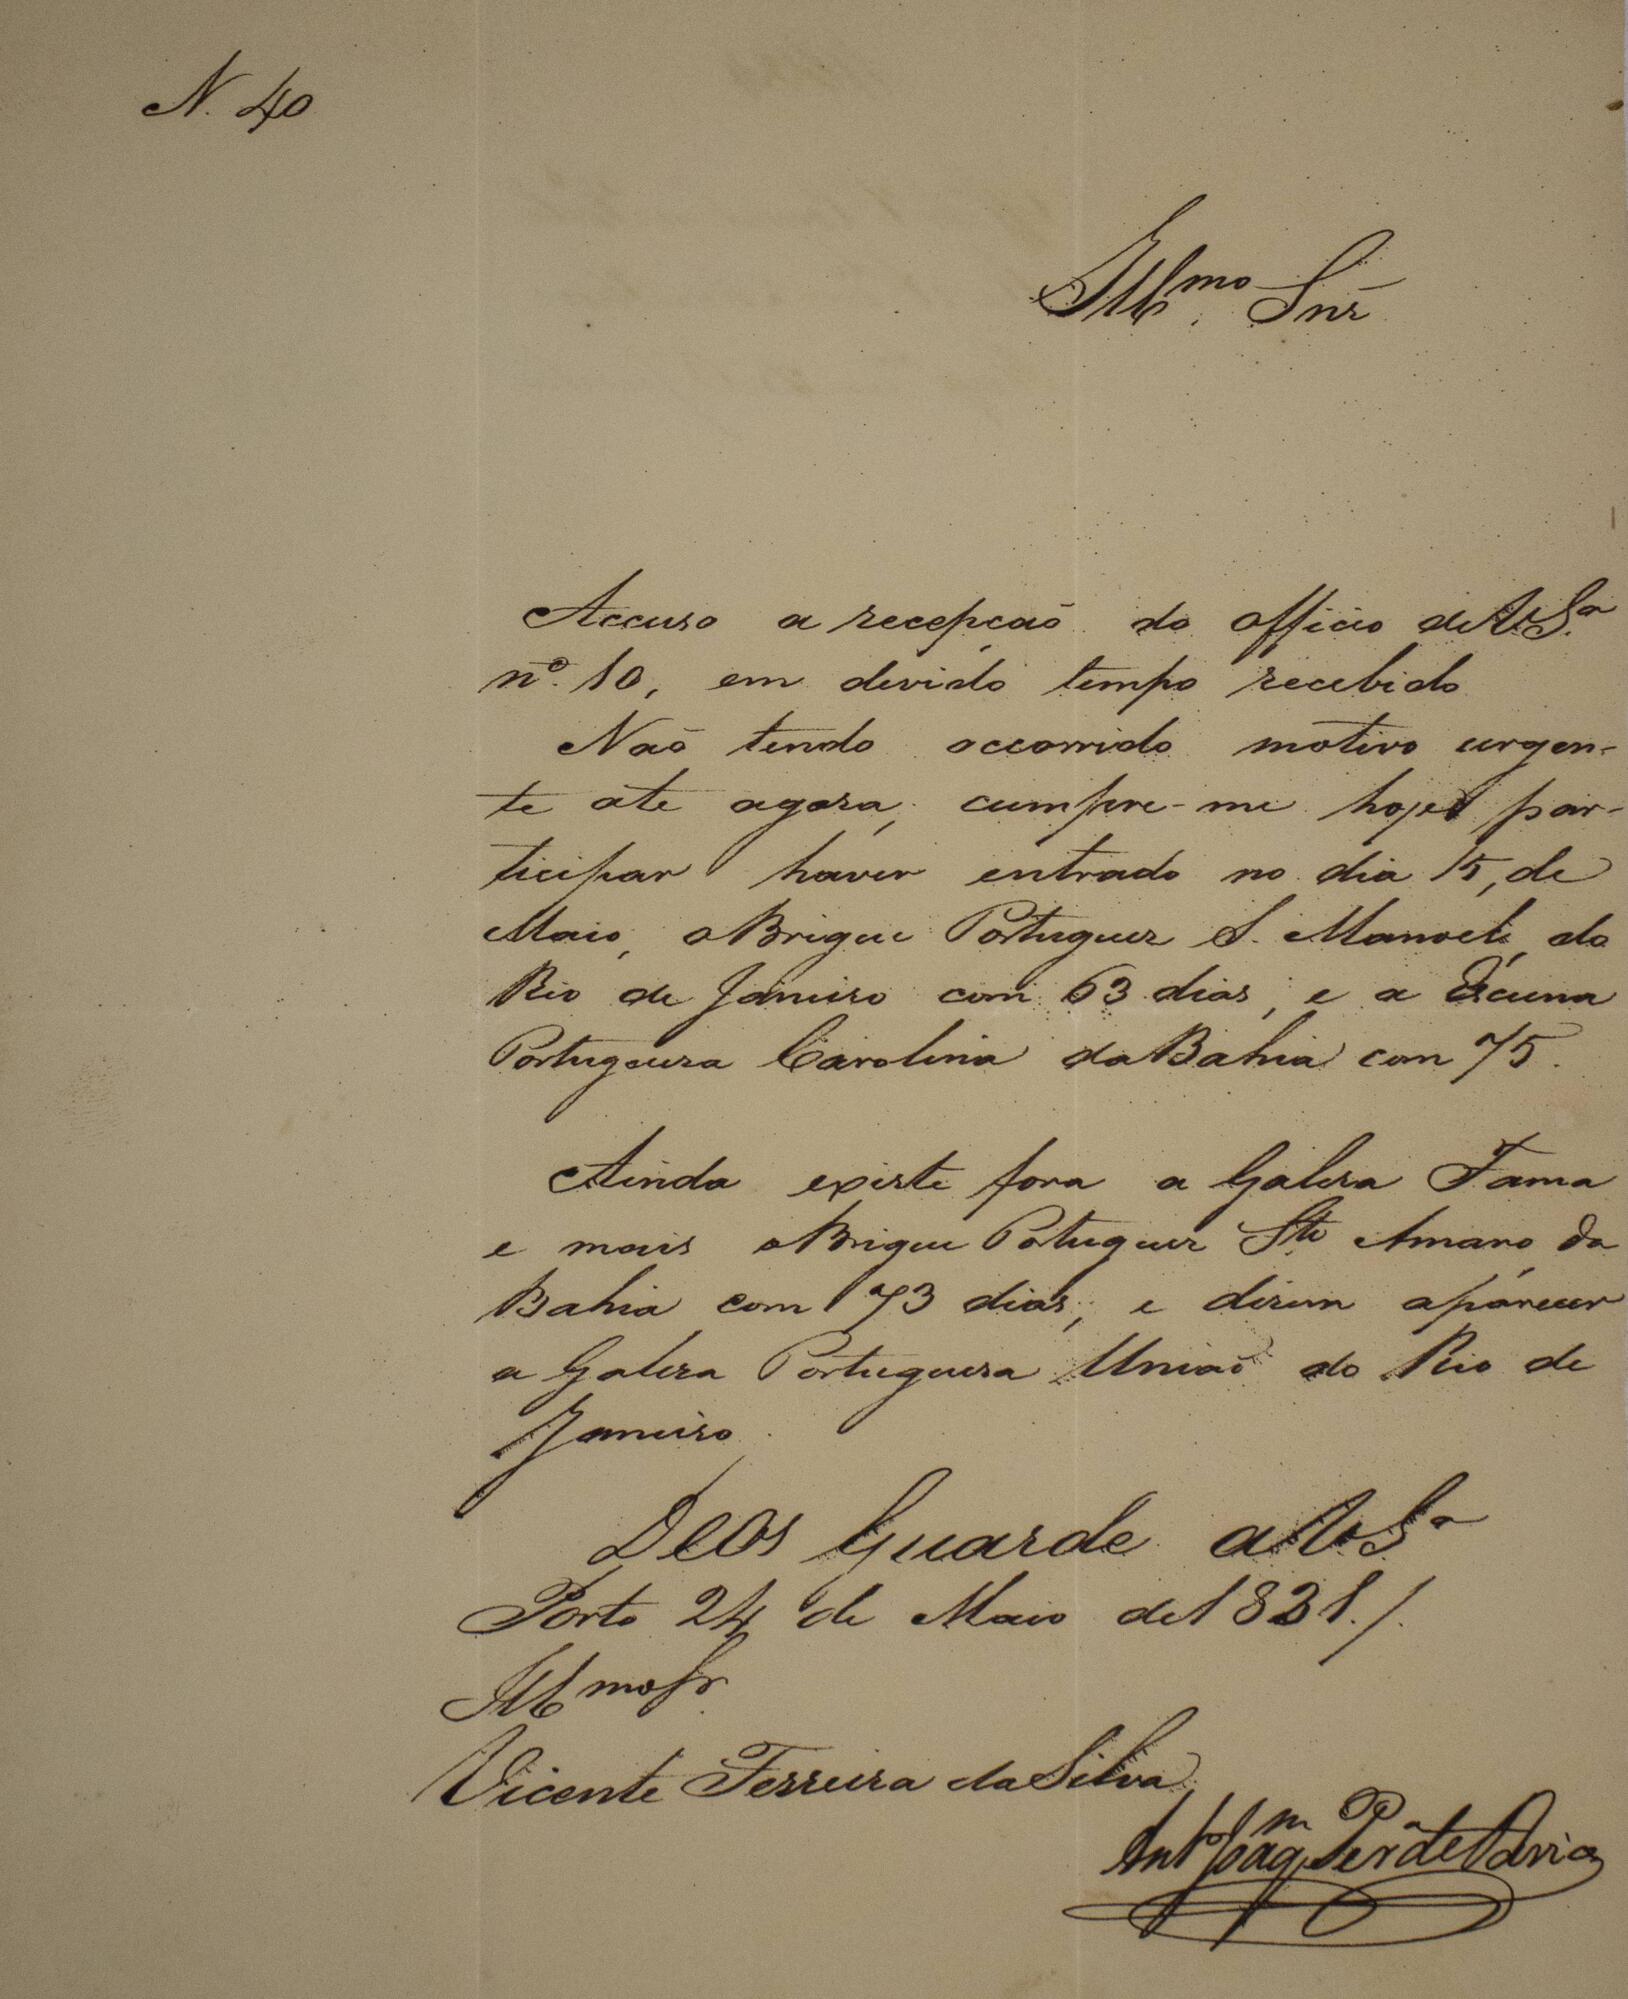 N. 40
Illmo. Snr
Accuso a recepçaõ do officio de V.Sa.
no. 10, em devido tempo recebido
Naõ tendo occorrido motivo urgen-
te ate agora, cumpre-me hoje par-
ticipar haver entrado no dia 15, de
Maio, o Brigue Portuguez S. Manoel, do
Rio de Janeiro com 63 dias, e a Escuna
Portugueza Carolina da Bahia com 75.
Ainda existe fora a Galera Fama
e mais o Brigue Portuguez Sto Amaro, da
Bahia com 73 dias, e dizem aparecer
a Galera Portugueza Uniaõ do Rio de
Janeiro.
Deos Guarde a V.Sa
Porto 24 de Maio de 1831./.
Illmo Sr.
Vicente Ferreira da Silva,
Anto Joaqm Pera de